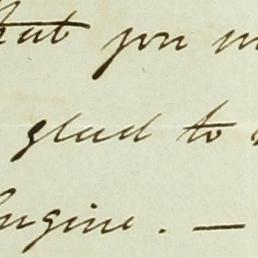 that you
glad to
Engine. —